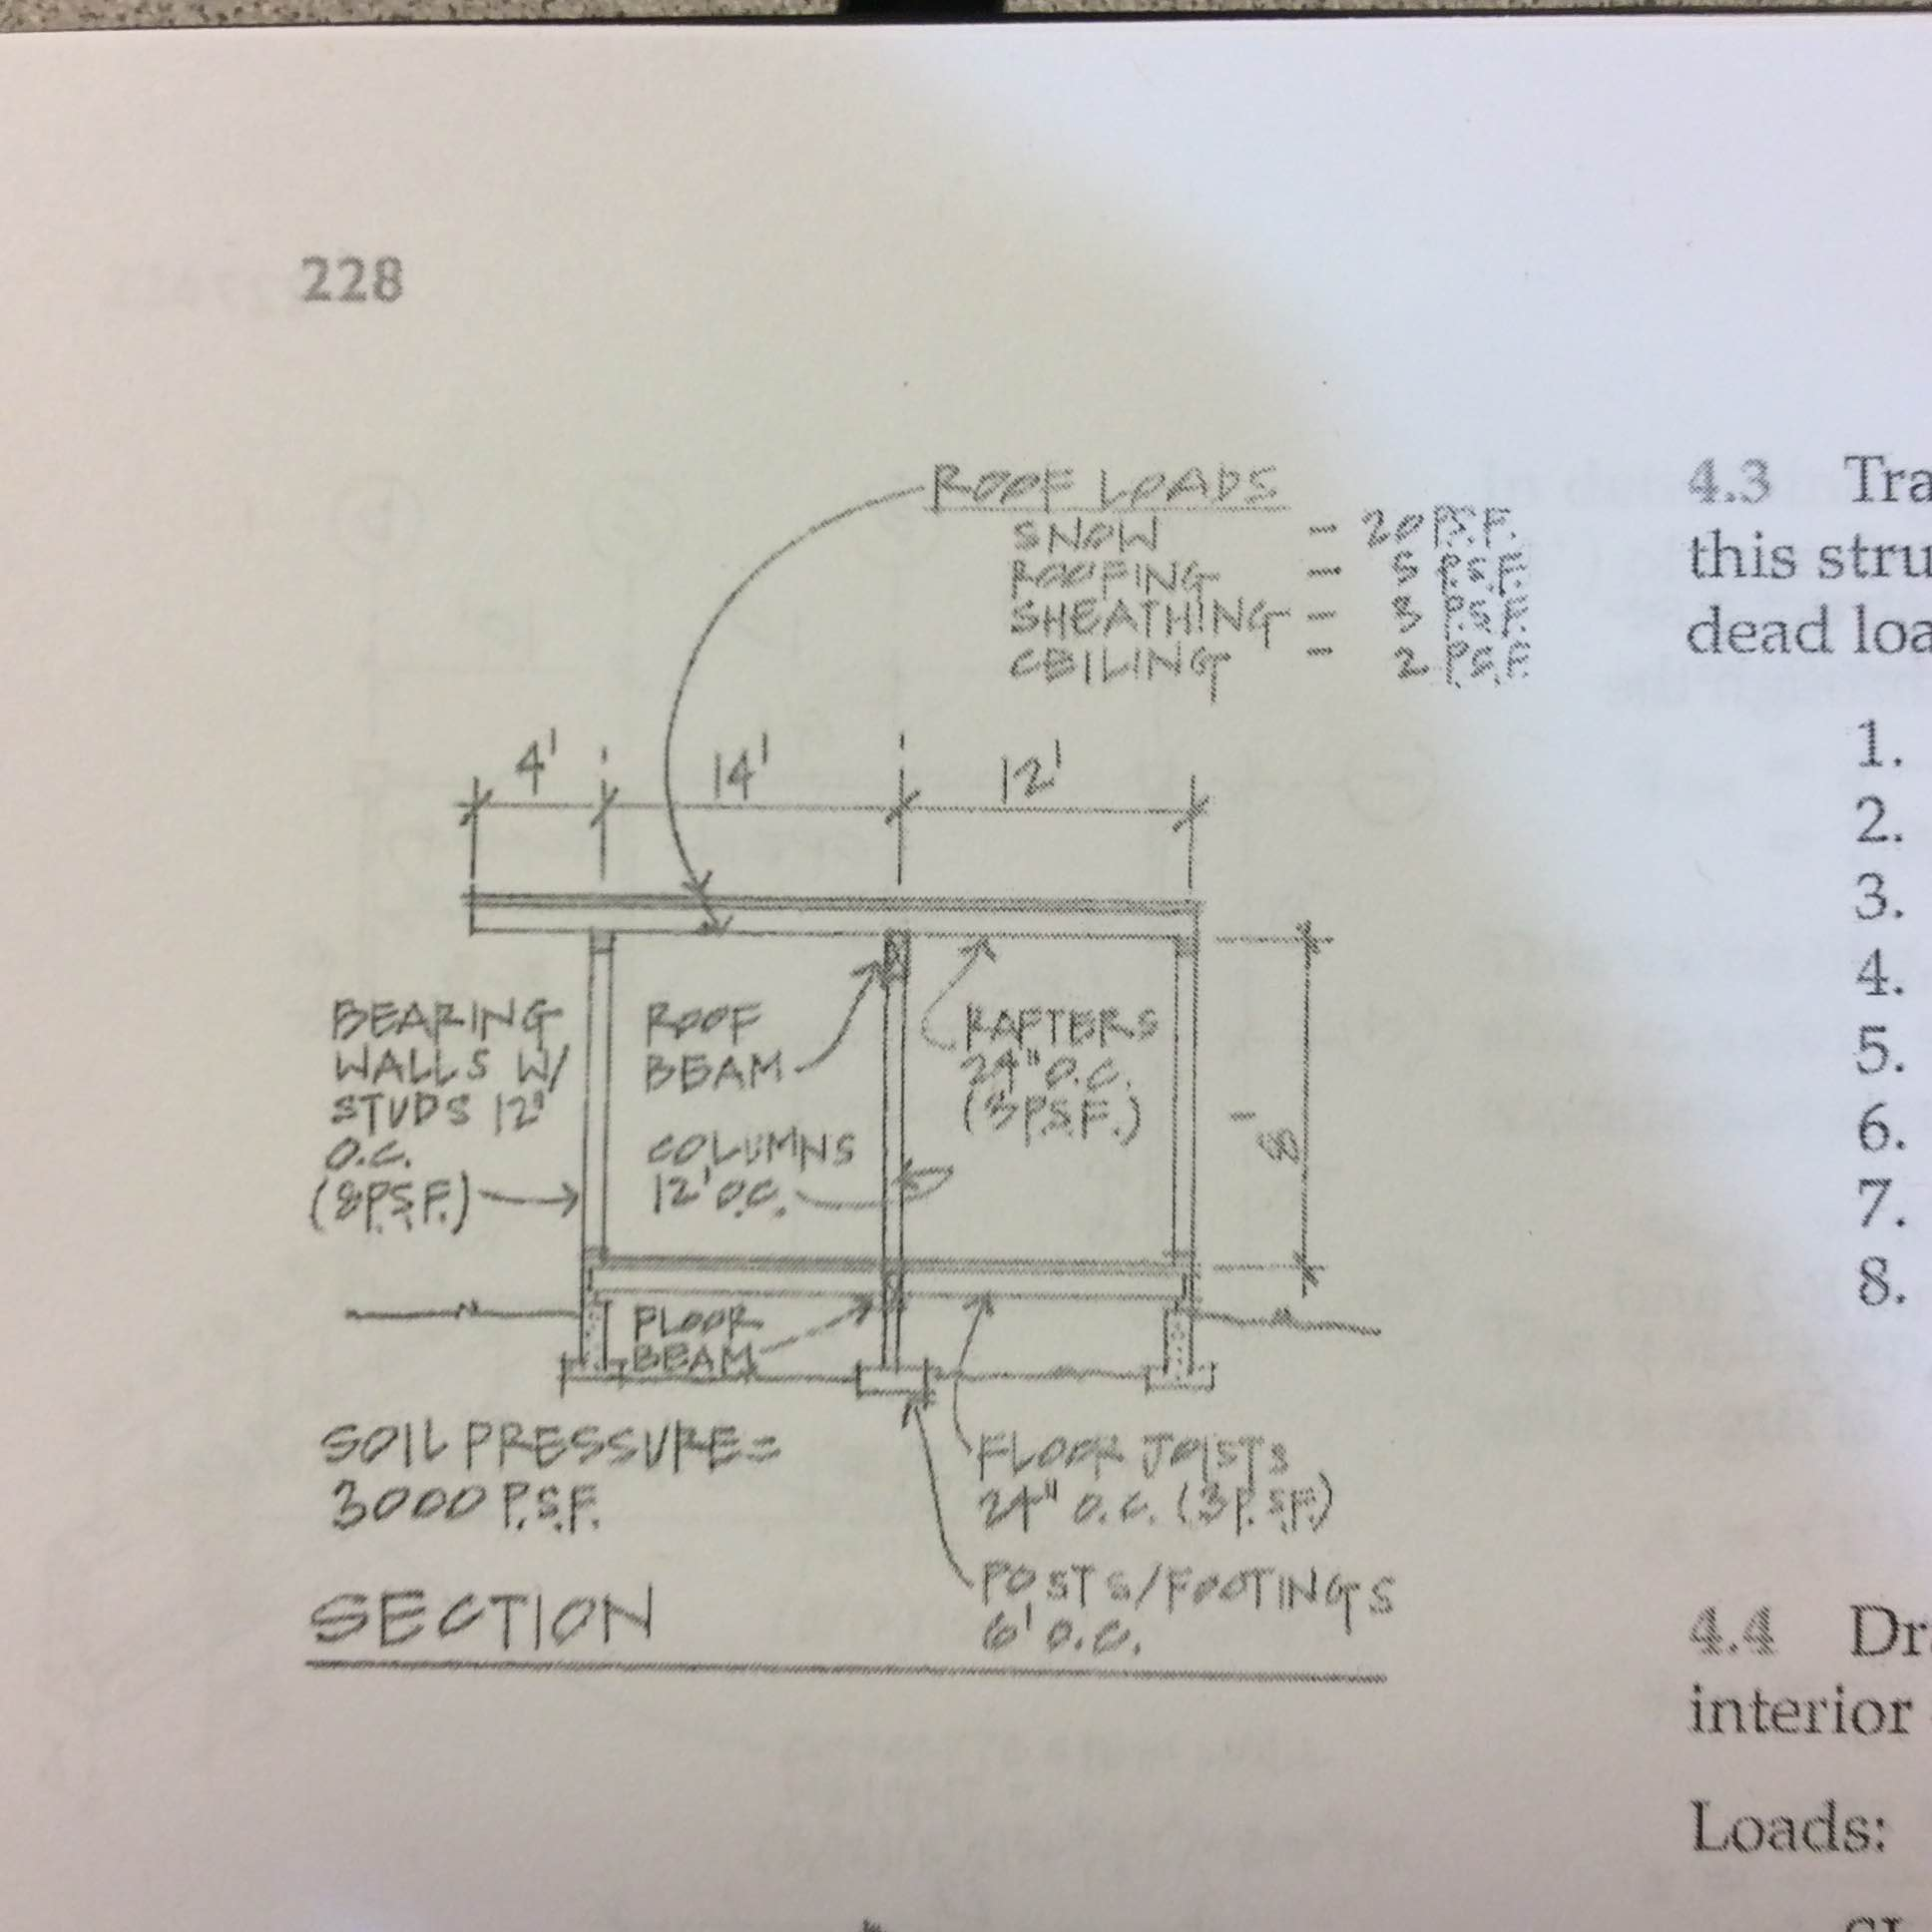 228
ROOF LOADS
SNOW - 20 P.S.F.
ROOFING - 5 P.S.F.
SHEATHING - 3 P.S.F.
CEILING - 2 P.S.F.
4' 14' 12'
BEARING
WALLS W/
STUDS 12"
O.C.
(8P.S.F.)
ROOF
BEAM
COLUMNS
12' O.C.
RAFTERS
24" O.C.
(3P.S.F.)
8'
FLOOR
BEAM
SOIL PRESSURE =
3000 P.S.F.
FLOOR JOISTS
24" O.C. (3P.S.F.)
POSTS/FOOTINGS
6' O.C.
SECTION
4.3 Tra
this stru
dead loa
1.
2.
3.
4.
5.
6.
7.
8.
4.4 Dr
interior
Loads: